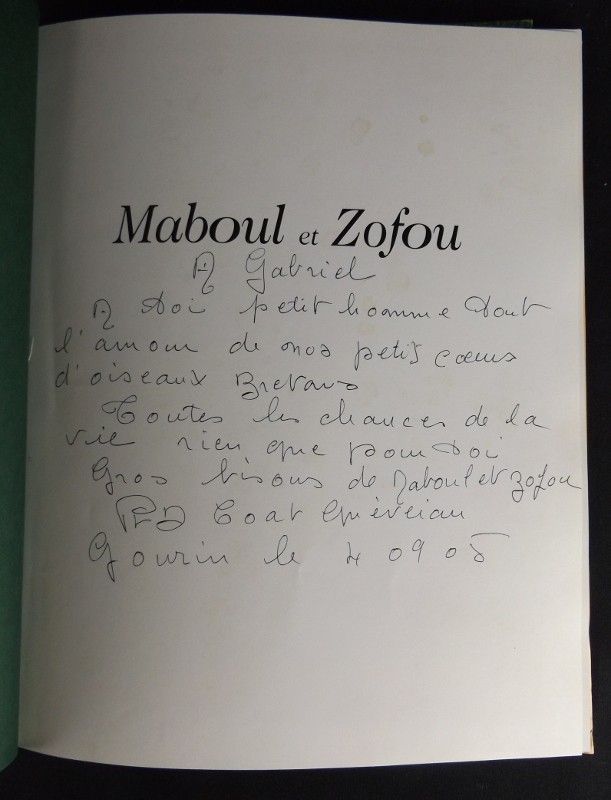 Maboul et Zofou
A Gabriel
A toi petit homme tout
l'amour de nos petits cœurs
d'oiseaux Bretons
Toutes les chances de la
vie rien que pour toi
Gros bisous de Maboul et Zofou
Coat
Gourin le 4 09 05